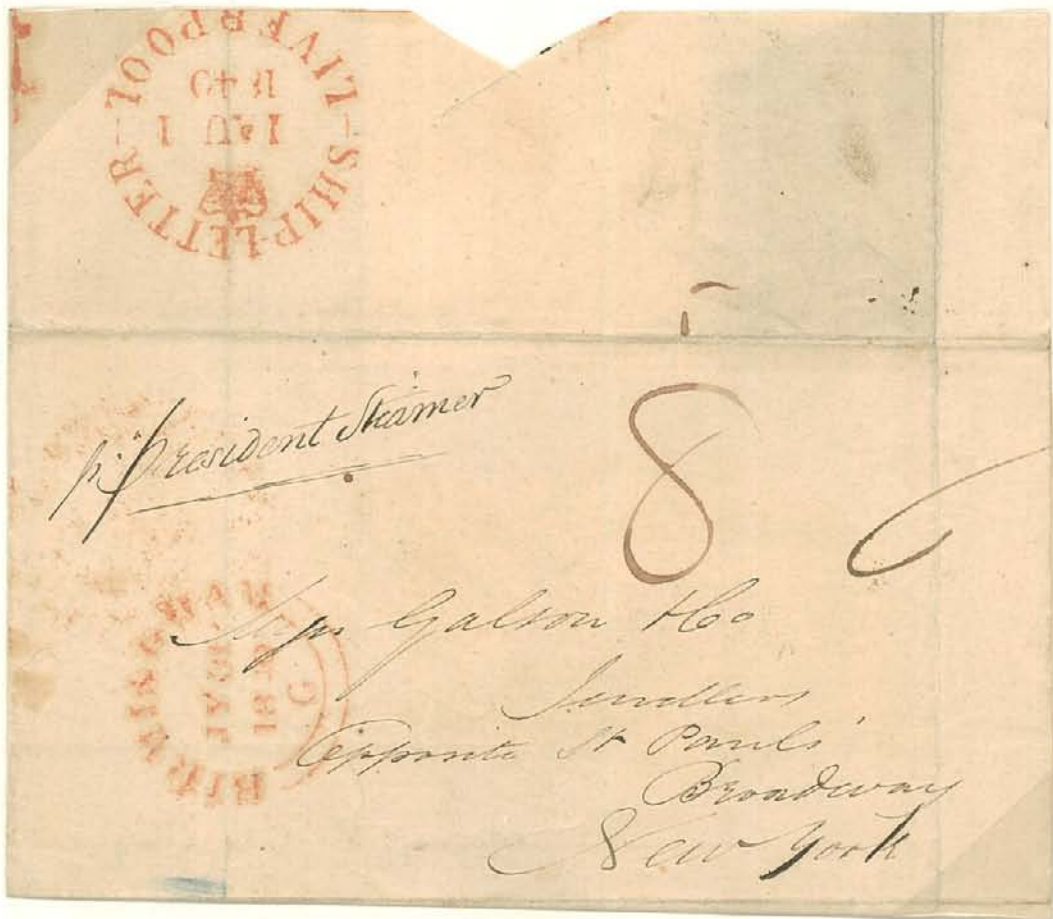 LIVERPOOL
1 AU 1
1840
SHIP-LETTER
pr President Steamer
8
Galson & Co
Jewellers
Opposite St Pauls
Broadway
New York
BIRMINGHAM
JY 31
1840
G